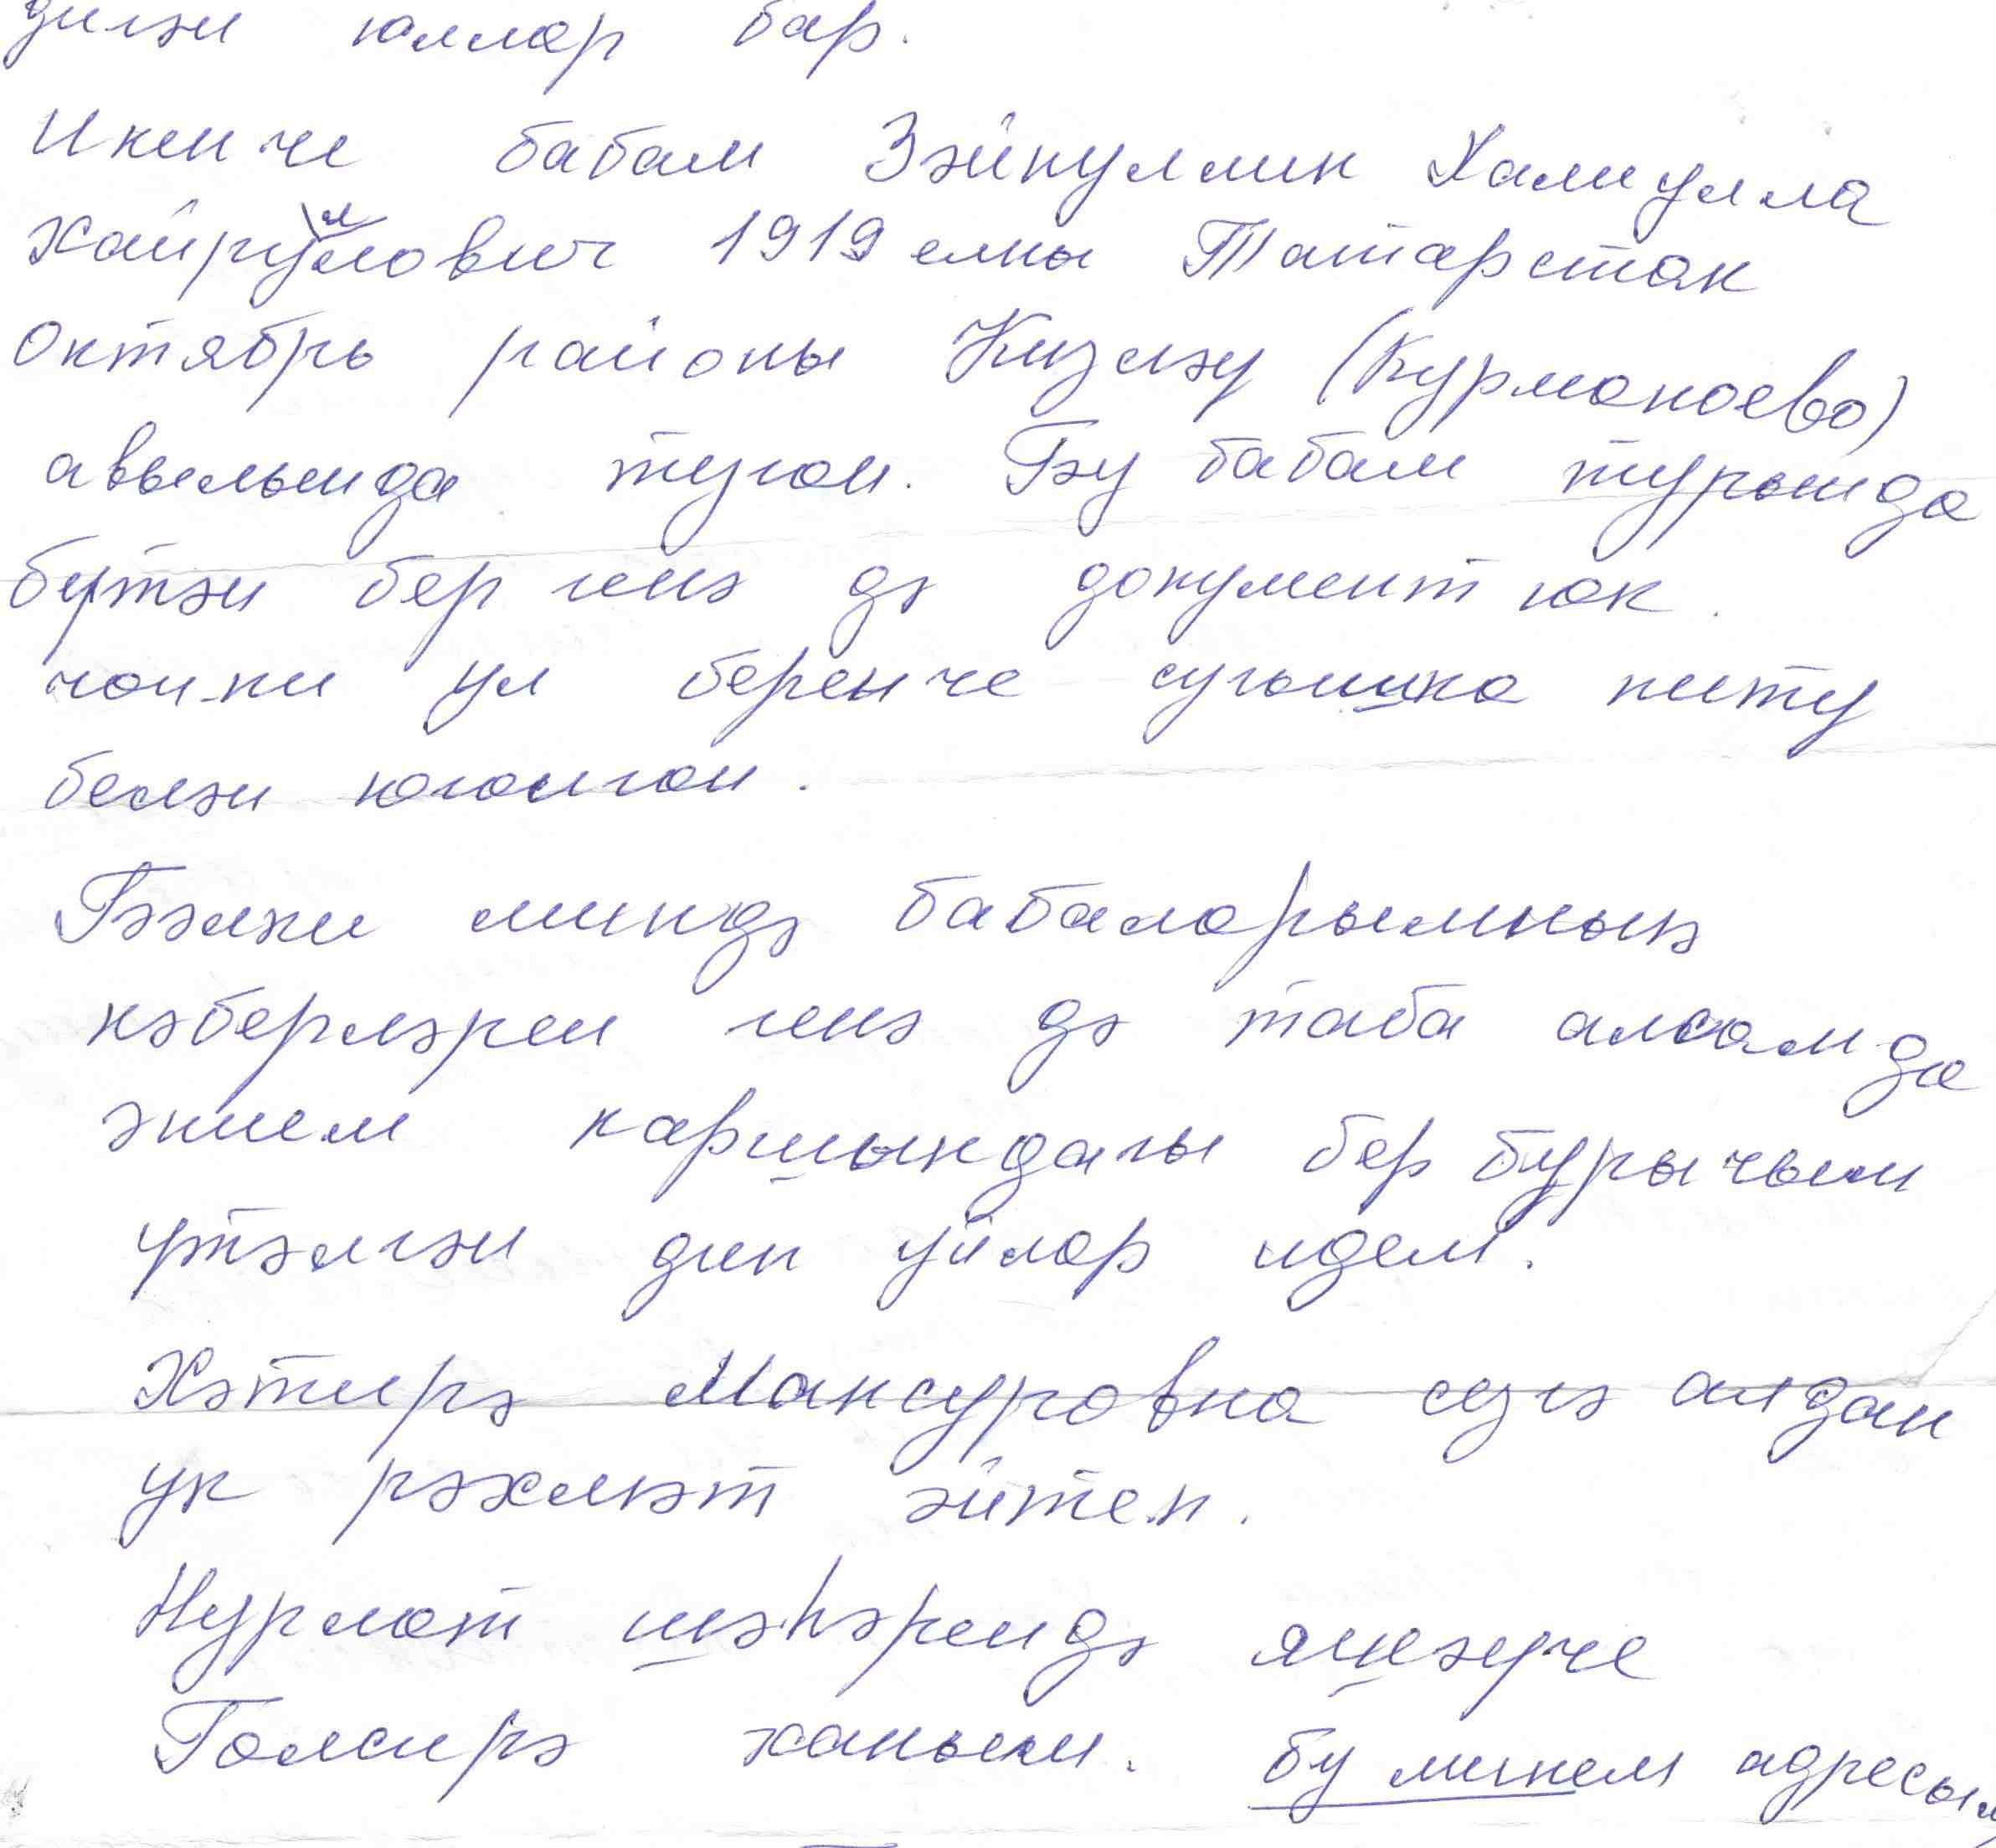 дигән юллар бар.
Икенче бабам Зәйнуллин Халиулла
Хайруллович 1919 елны Татарстан
Октябрь районы Кизләү (Курманаево)
аввылында туган. Бу бабам турында
бүтән бер генә дә документ юк.
чөнки ул беренче сугышка китү
белән югалган.
Бәлки миндә бабаларымның
кәберләрен генә дә таба алсам да
әнием каршындагы бер бурычым
үтәлгән дип уйлар идем.
Хәтирә Мансуровна сезгә алдан
ук рәхмәт әйтеп.
Нурлат шәһәрендә яшәүче
Гөлсирә ханым. бу минем адресым